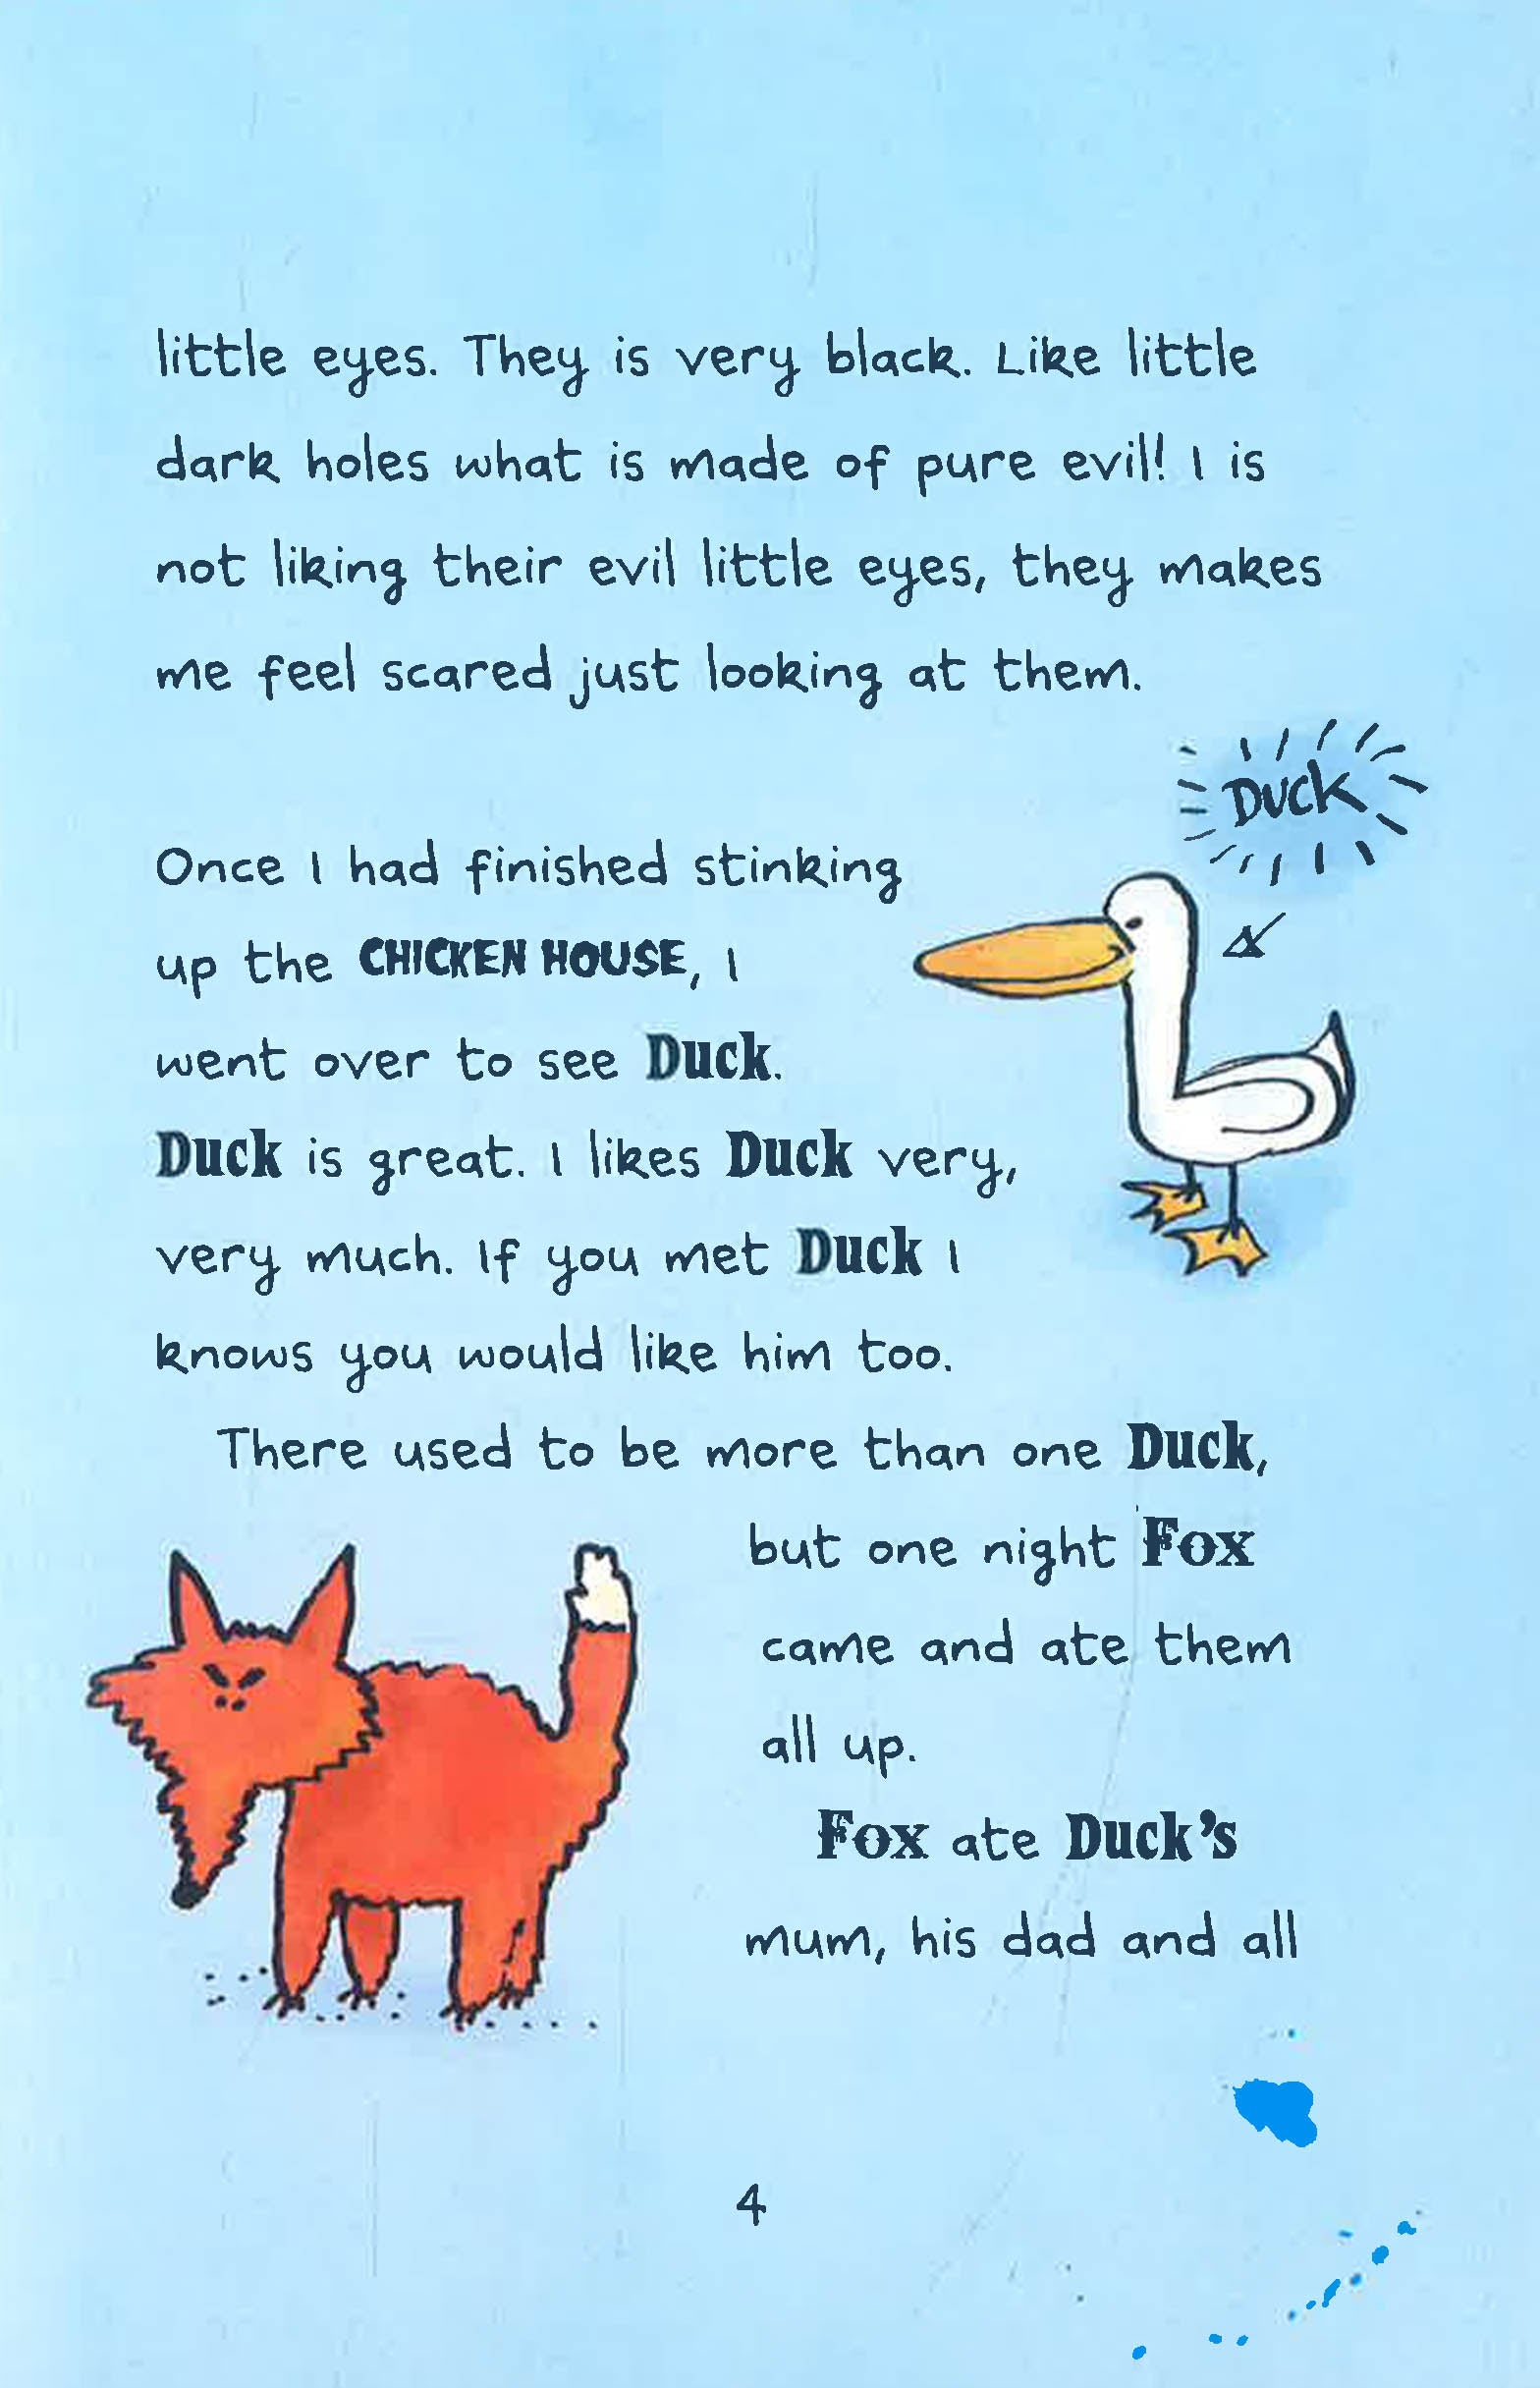 little eyes. They is very black. Like little
dark holes what is made of pure evil! I is
not liking their evil little eyes, they makes
me feel scared just looking at them.
Duck
Once I had finished stinking
up the CHICKEN HOUSE, I
went over to see Duck.
Duck is great. I likes Duck very,
very much. If you met Duck I
knows you would like him too.
There used to be more than one Duck,
but one night Fox
came and ate them
all up.
Fox ate Duck's
mum, his dad and all
4